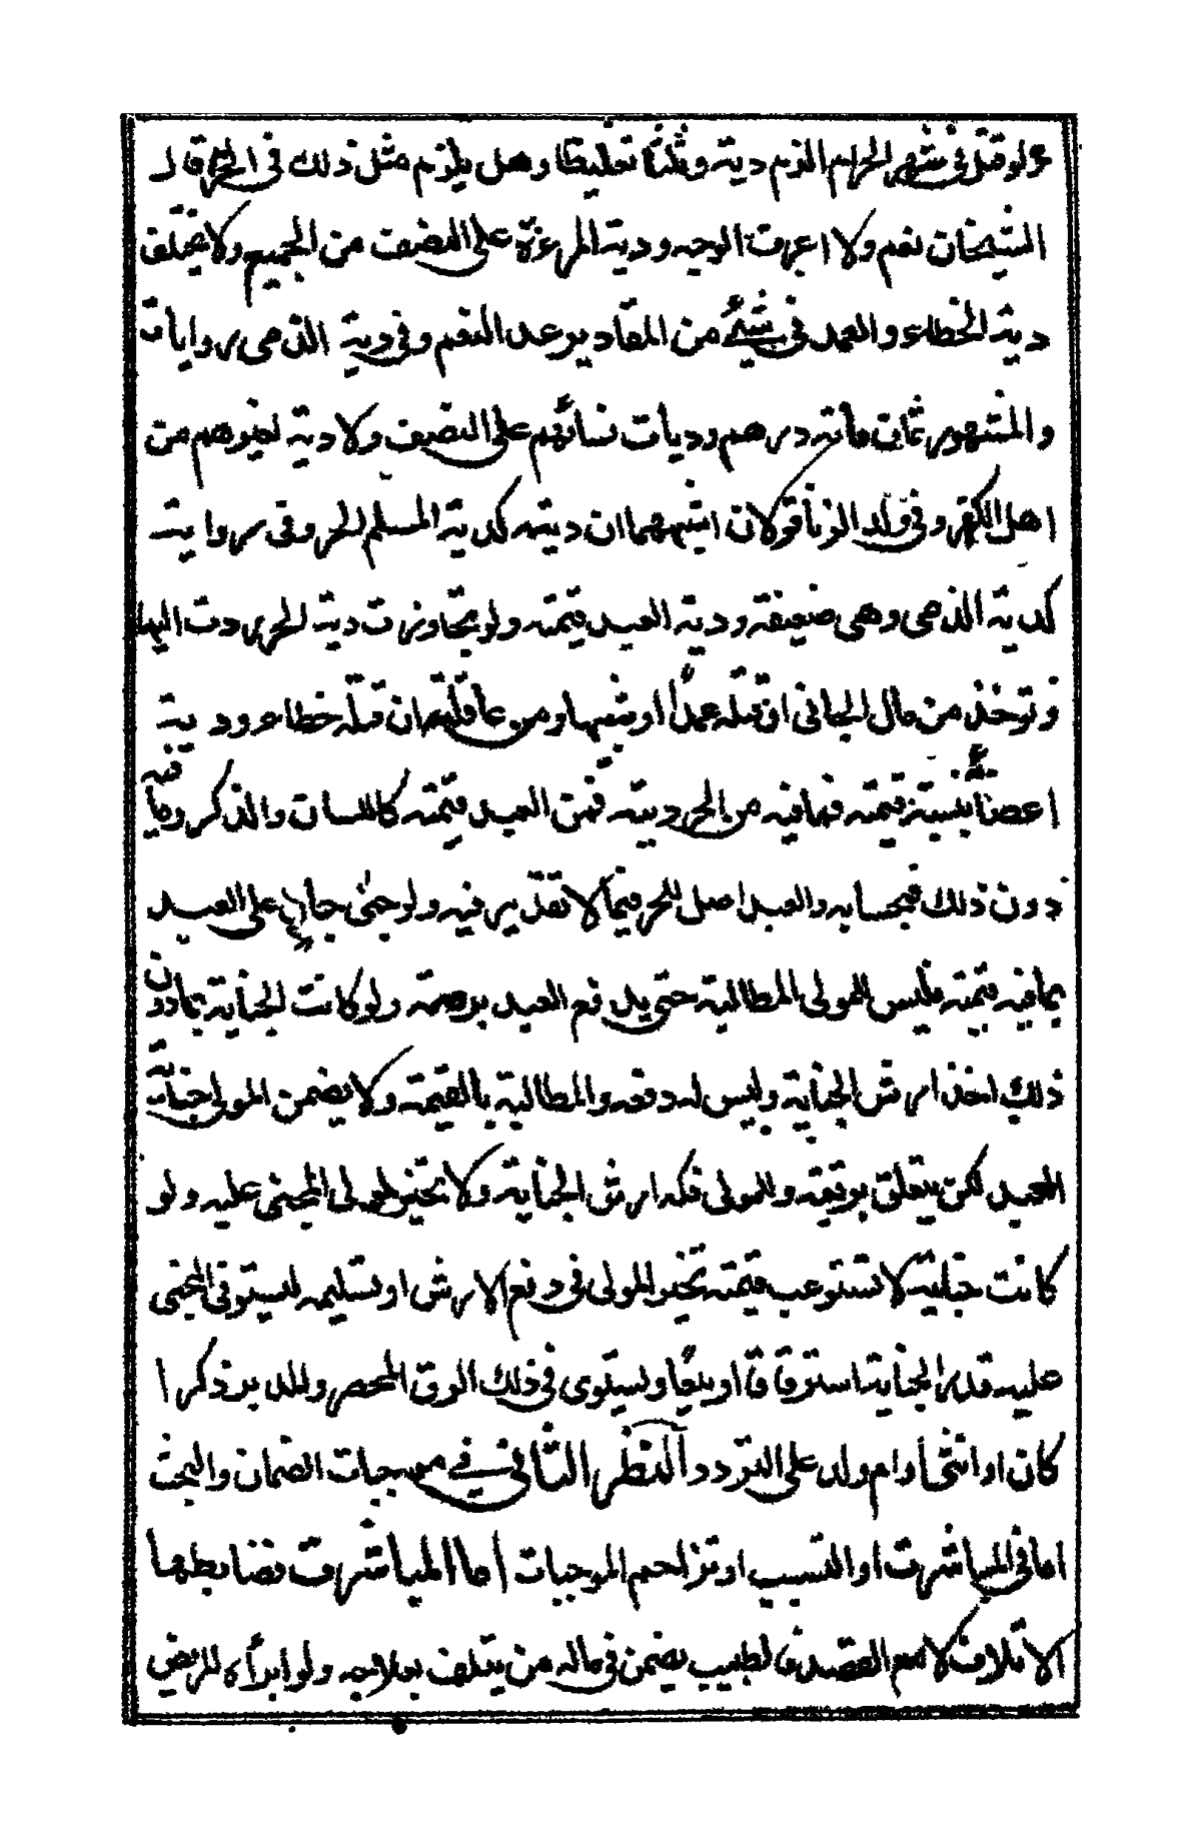 ولو قتل في شهر الحرام الزم دية وثلثا تغليظا وهل يلزم مثل ذلك في الحرم قال
الشيخان نعم ولا اعرف الوجه ودية المرءة على النصف من الجميع ولا يختلف
دية الخطاء والعمد في شيء من المقادير عدا النفس وفي دية الذمي روايات
والمشهور ثمان مائة درهم وديات نسائهم على النصف ولا دية لغيرهم من
اهل الكفر وفي ولد الزنا قولان اشبههما ان ديته كدية المسلم الحر وفي رواية
كدية الذمي وهي ضعيفة ودية العبد قيمته ولو تجاوزت دية الحر ردت اليها
وتوخذ من مال الجاني ان قتله عمدا او شبيها ومن عاقلته ان قتله خطاء ودية
اعضائه بنسبة قيمته فما فيه من الحر ديته فمن العبد قيمته كاللسان والذكر وما فيه
دون ذلك فبحسابه والعبد اصل للحر فيما لا تقدير فيه ولو جنى جان على العبد
بما فيه قيمته فليس للمولى المطالبة حتى يدفع العبد برمته ولو كانت الجناية بما دون
ذلك اخذ ارش الجناية وليس له دفعه والمطالبة بالقيمة ولا يضمن المولى جناية
العبد لكن يتعلق برقبته وللمولى فكه ارش الجناية ولا تخير لمولى المجني عليه ولو
كانت جناية لا تستوعب قيمته تخير المولى في دفع الارش او تسليمه ليستوفي المجني
عليه قدر الجناية استرقاقا او بيعا ويستوي في ذلك الرق المحض والمدبر ذكرا
كان او انثى او ام ولد على التردد النظر الثاني في موجبات الضمان والبحث
اما في المباشرة او التسبيب او تزاحم الموجبات اما المباشرة فضابطها
الاتلاف لا مع القصد فالطبيب يضمن في ماله من يتلف بعلاجه ولو ابرأه المريض